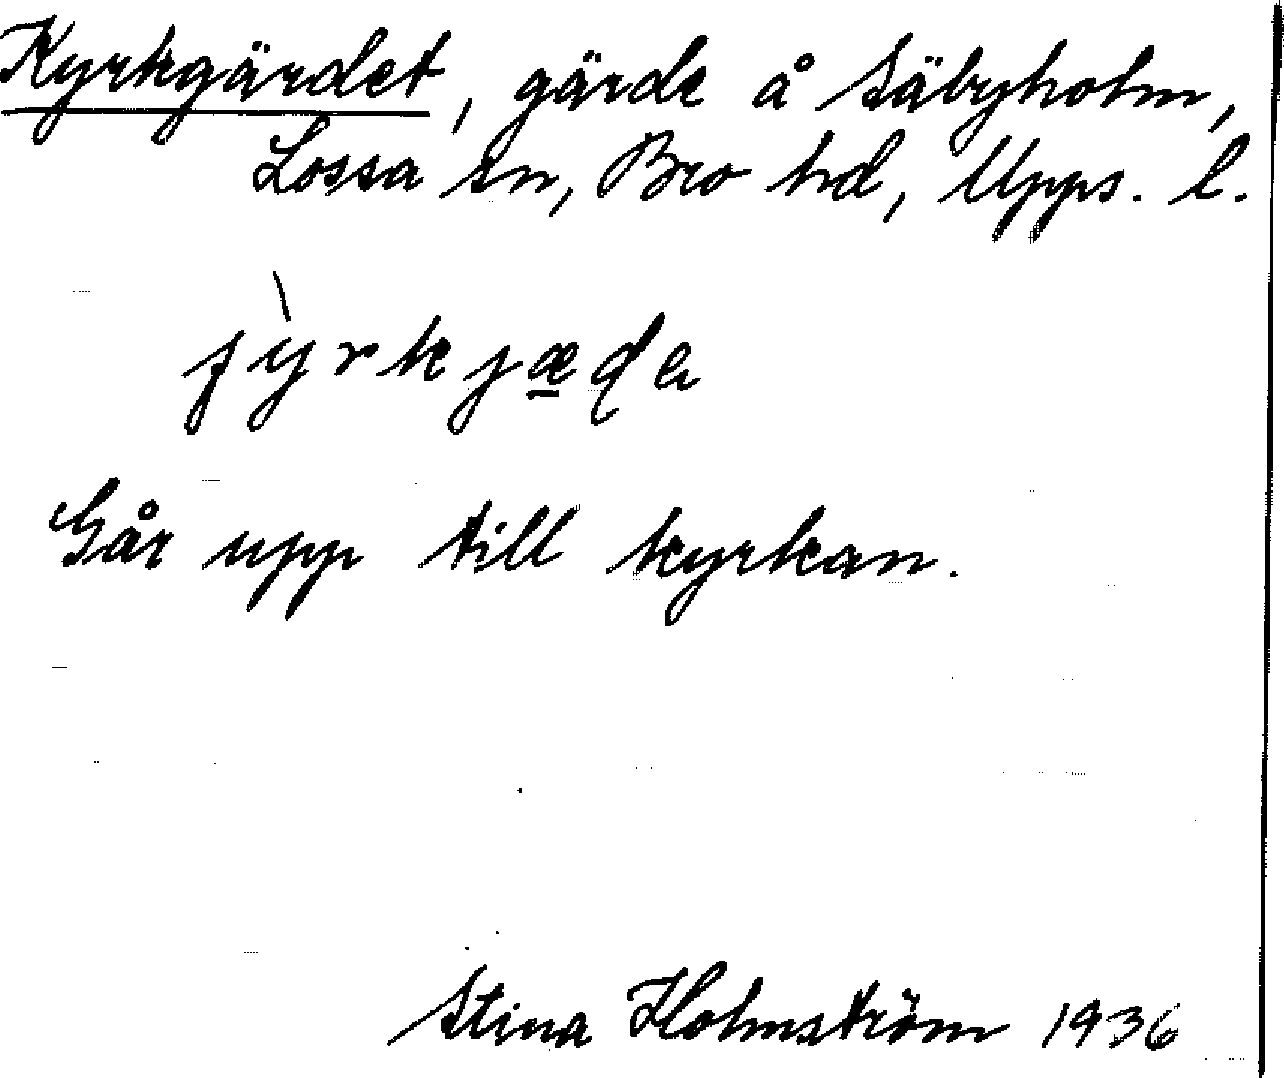 Kyrkgärdet, gärde å Säbyholm,
Lossa sn, Bro hd, Upps. l.
Går upp till kyrkan.
Stina Holmström 1936